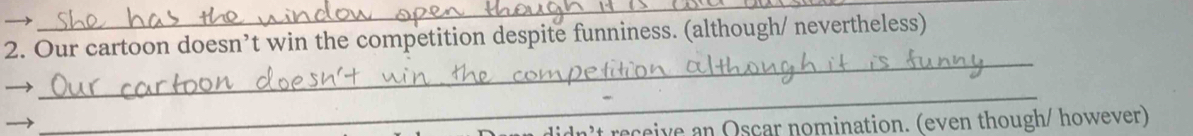 → She has the window open though it is cold
2. Our cartoon doesn't win the competition despite funniness. (although/ nevertheless)
→ Our cartoon doesn't win the competition although it is funny
→
didn't receive an Oscar nomination. (even though/ however)